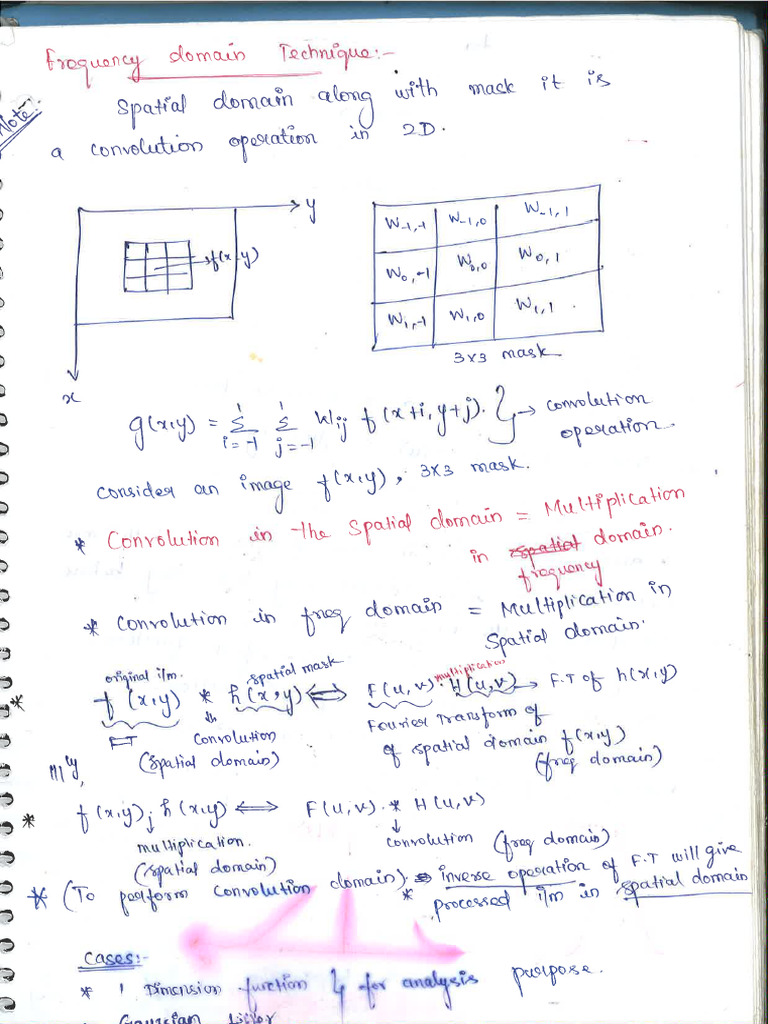 Frequency domain Technique:-
Note:
Spatial domain along with mack it is
a convolution operation in 2D.
y
f(x,y)
x
W-1,-1 W-1,0 W-1,1
W0,-1 W0,0 W0,1
W1,-1 W1,0 W1,1
3x3 mask
g(x,y) = Σ i=-1 1 Σ j=-1 1 Wij f(x+i, y+j). } → convolution
operation.
consider an image f(x,y), 3x3 mask.
* Convolution in the spatial domain = Multiplication
in spatial domain.
frequency
* Convolution in freq domain = Multiplication in
spatial domain.
original i/m. spatial mask multiplication
* f(x,y) * h(x,y) ⟺ F(u,v) . H(u,v) → F.T of h(x,y)
FT convolution Fourier Transform of
(spatial domain) of spatial domain f(x,y)
(freq domain)
IIIly,
* f(x,y) . h(x,y) ⟺ F(u,v) * H(u,v)
multiplication. convolution (freq domain)
(spatial domain)
* (To perform convolution domain). inverse operation of F.T will give
* processed i/m in spatial domain
Cases:-
* 1 Dimension function } for analysis purpose.
Gaussian